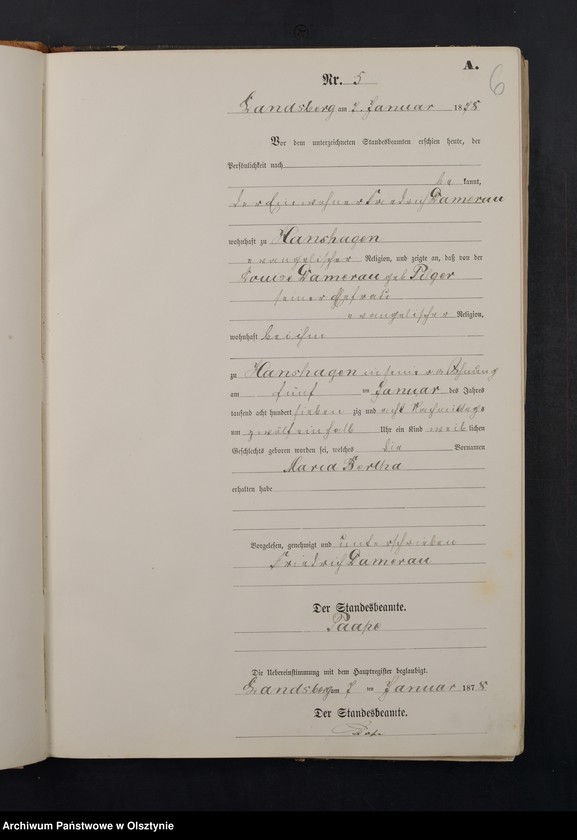 A.
6
Nr. 5
Landsberg am 7. Januar 1878
Vor dem unterzeichneten Standesbeamten erschien heute, der
Persönlichkeit nach
be kannt,
der Einwohner Friedrich Damerau
wohnhaft zu Hanshagen
evangelischer Religion, und zeigte an, daß von der
Louise Damerau geb
seiner Ehefrau
evangelischer Religion,
wohnhaft bei ihm
zu Hanshagen in seiner Wohnung
am fünf ten Januar des Jahres
tausend acht hundert sieben zig und acht Nachmittags
um zwölf einhalb Uhr ein Kind weib lichen
Geschlechts geboren worden sei, welches die Vornamen
Maria Bertha
erhalten habe
Vorgelesen, genehmigt und unterschrieben
Friedrich Damerau
Der Standesbeamte.
Paape
Die Uebereinstimmung mit dem Hauptregister beglaubigt.
Landsberg am 7 ten Januar 1878
Der Standesbeamte.
Archiwum Państwowe w Olsztynie